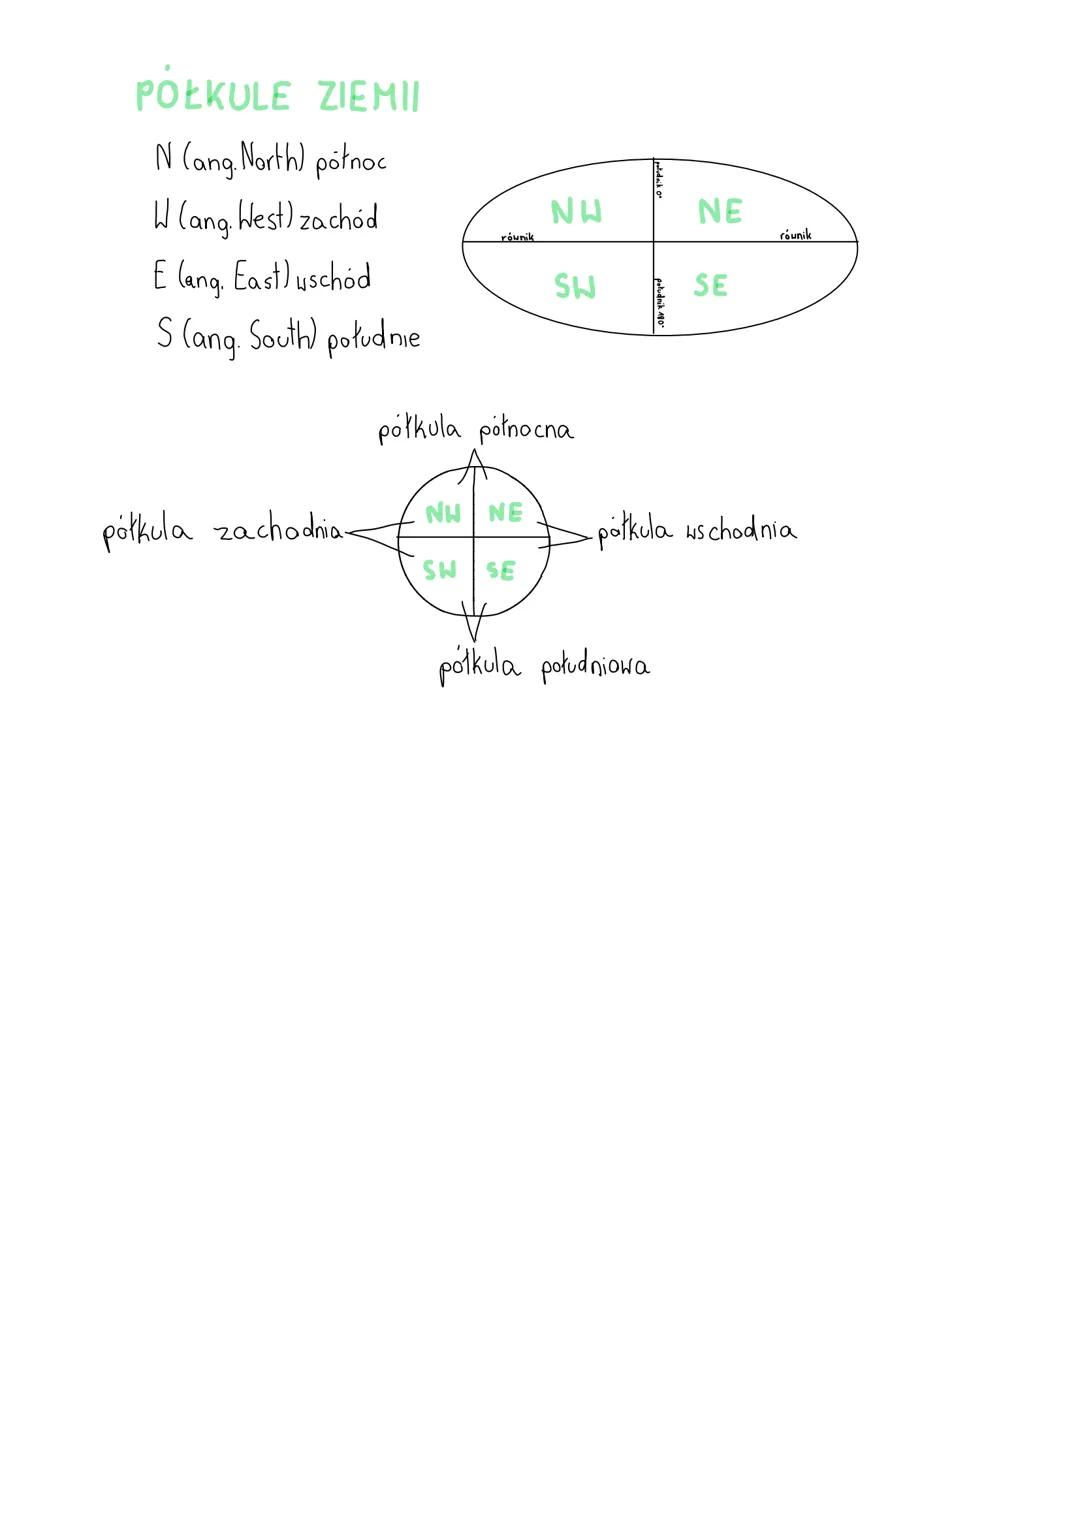 PÓŁKULE ZIEMII
N (ang. North) północ
W (ang. West) zachód
E (ang. East) wschód
S (ang. South) południe
południk 0°
NW NE
równik równik
SW SE
południk 180°
półkula północna
NW NE
półkula zachodnia półkula wschodnia
SW SE
półkula południowa